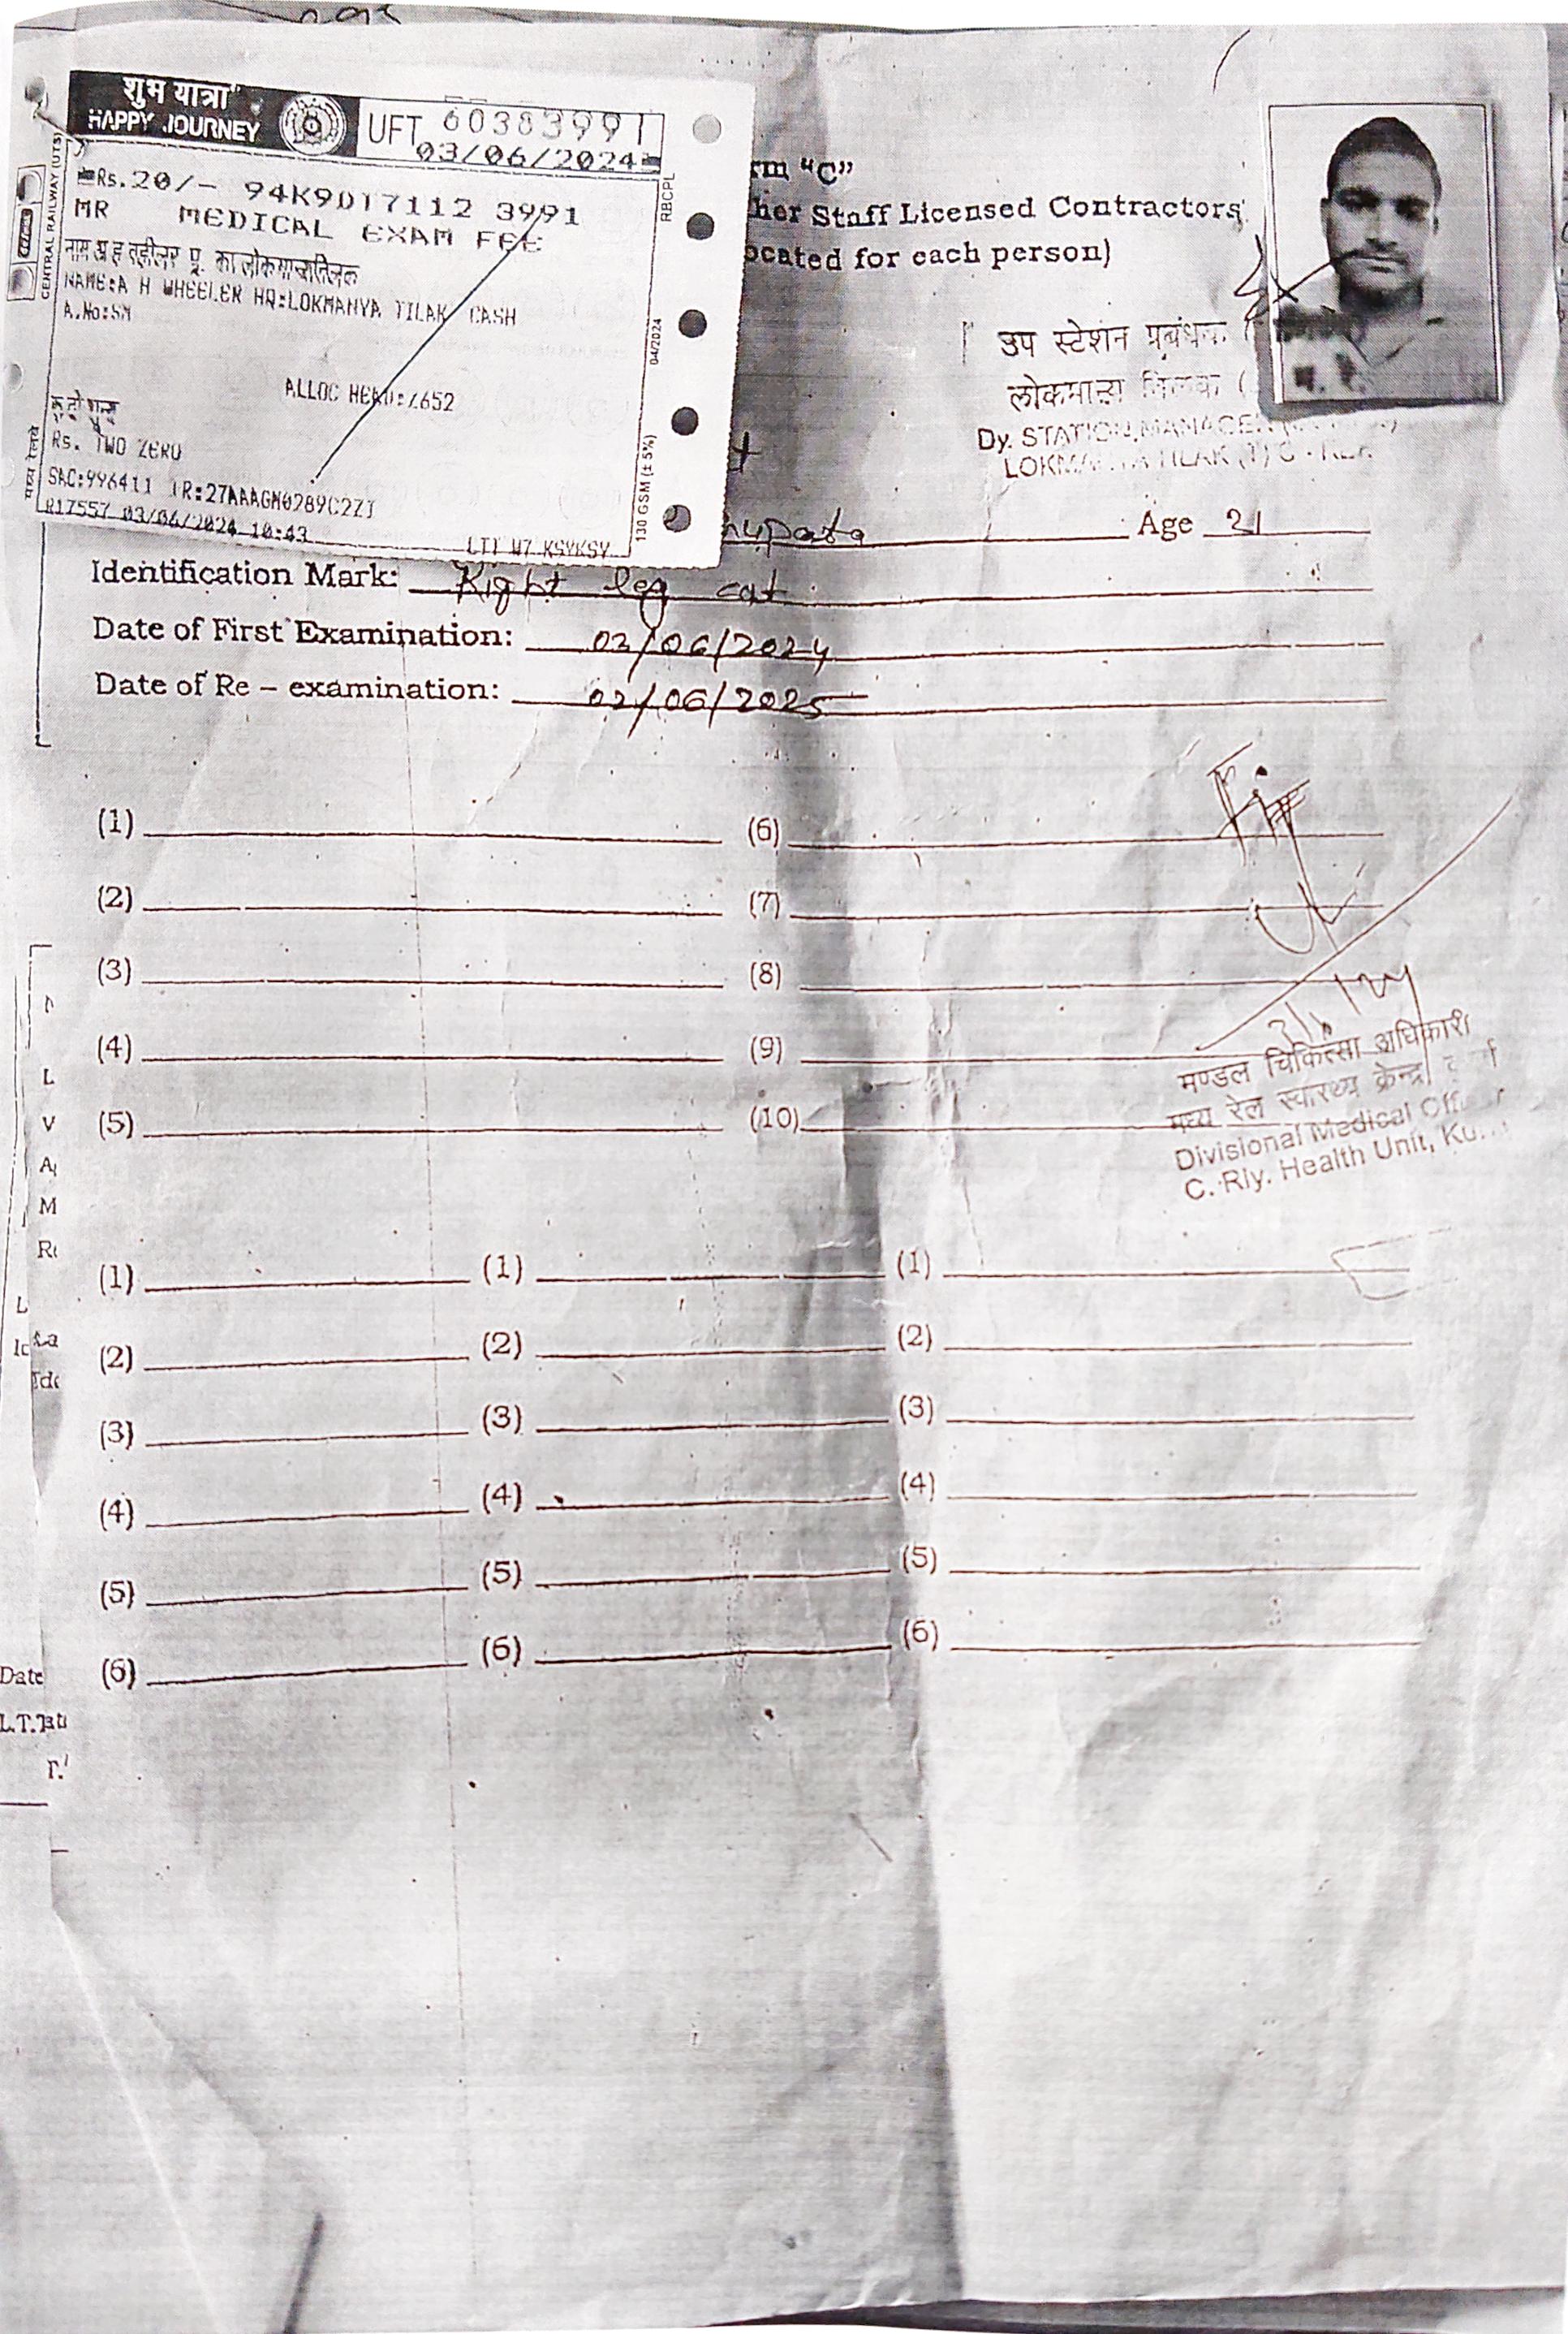 शुभ यात्रा
HAPPY JOURNEY
UFT 60383991
03/06/2024
CENTRAL RAILWAY (UTS)
Rs.20/- 94K9D17112 3991
MR MEDICAL EXAM FEE
NAME:A H WHEELER HQ:LOKMANYA TILAK CASH
A.No:SM
ALLOC HEAD:Z652
Rs. TWO ZERO
SAC:996411 IR:27AAAGM0289C2ZI
R17557 03/06/2024 10:43
RBCPL
04/2024
130 GSM (± 5%)
मध्य रेलवे
rm "C"
her Staff Licensed Contractors
ocated for each person)
उप स्टेशन प्रबंधक
लोकमान्य तिलक (
Dy. STATION MANAGER
LOKMANYA TILAK (T) C. RLY.
Age 21
Identification Mark: Right leg cat
Date of First Examination: 03/06/2024
Date of Re – examination: 02/06/2025
(1) (6)
(2) (7)
(3) (8)
(4) (9)
(5) (10)
मण्डल चिकित्सा अधिकारी
मध्य रेल स्वास्थ्य केन्द्र
Divisional Medical Off
C. Rly. Health Unit, Ku
(1) (1) (1)
(2) (2) (2)
(3) (3) (3)
(4) (4) (4)
(5) (5) (5)
(6) (6) (6)
Date